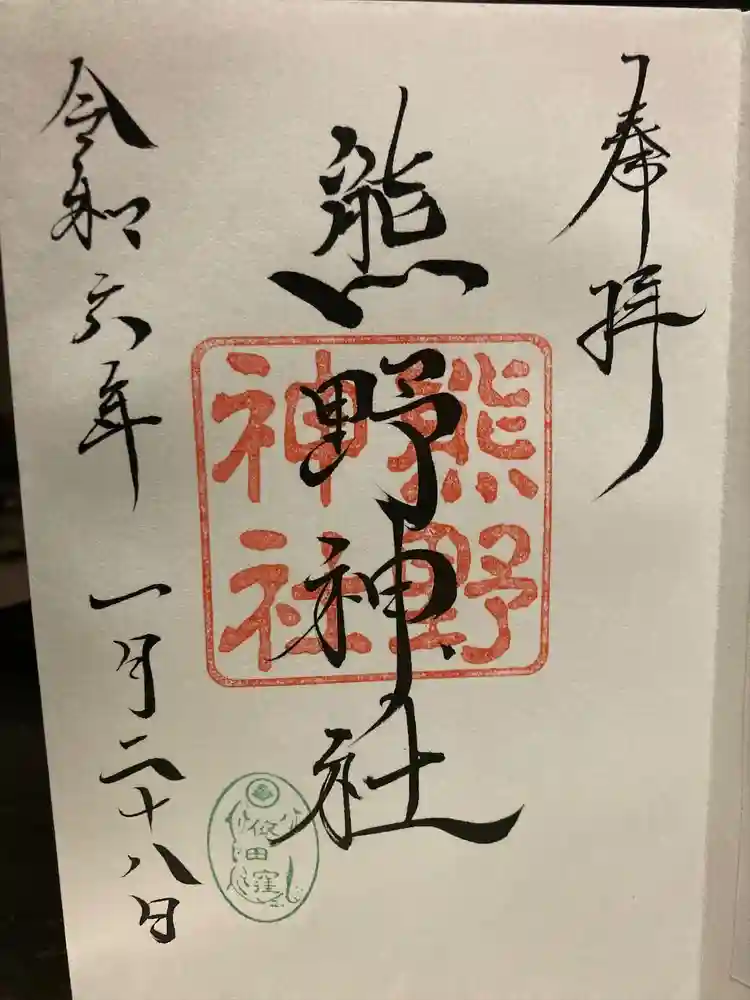 奉拝
熊野神社
熊野
神社
令和六年 一月二十八日
依田窪